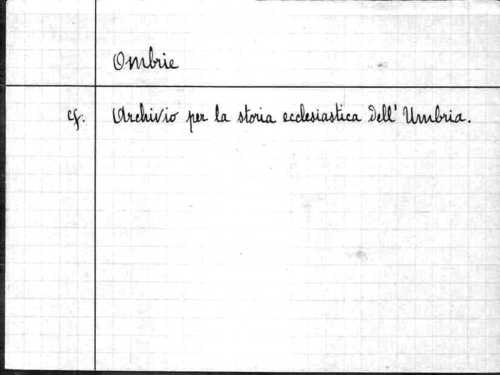 Ombrie
cf. Archivio per la storia ecclesiastica dell' Umbria.